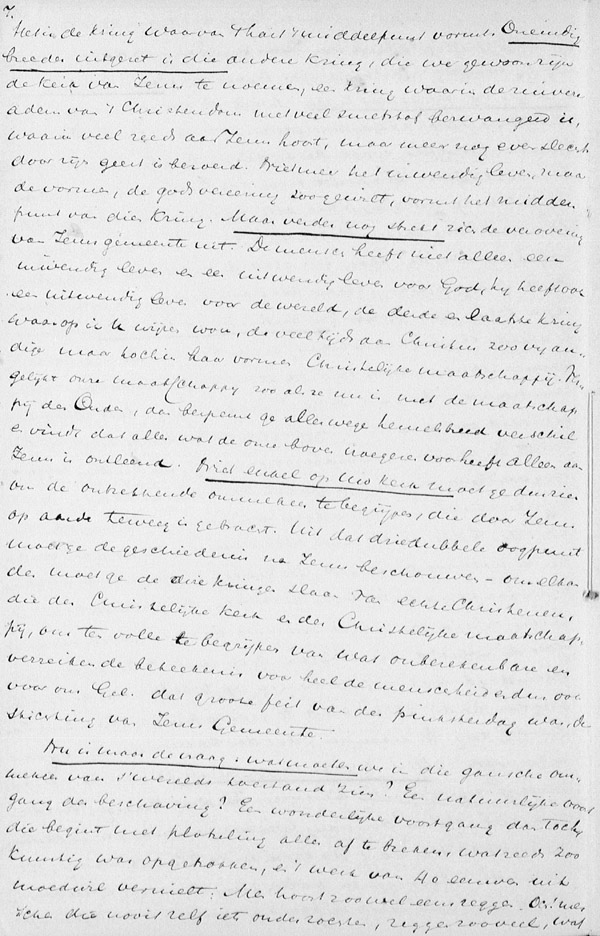 7.
Het is de kring waarvan 't hart 't middelpunt vormt. Oneindig
breeder uitgezet is die andere kring, die we gewoon zijn
de kerk van Jezus te noemen, een kring waarin de zuivere
adem van 't Christendom met veel smetstof bezwangerd is,
waarin veel reeds aan Jezus hoort, maar meer nog even slechts
door zijn geest is beroerd. Niet meer het inwendig leven, maar
de vormen, de godsvereering zoo gewirtt, vormt het middel
punt van dien kring. Maar verder nog strekt zich de verovering
van Jezus gemeente uit. De mensch heeft niet alleen een
inwendig leven en een uitwendig leven voor God, hy heeft ook
een uitwendig leven voor de wereld, de derde en laatste kring
waarop ik u wijzen wou, de veeltijds aan Christus zoo vyan-
dige maar toch in haar vormen Christelijke maatschappij. Ver-
gelijkt onze maatschappy zoo als ze nu is met de maatschap
pij der Ouden, dan bespeurt ge allerwege hemelsbreed verschil
en vindt dat alles wat de onze boven vooruit heeft alleen aan
Jezus is ontleend. Niet enkel op uw kerk moet ge dus zien
om de ontzettende ommekeer te begrijpen, die door Jezus
op aarde teweeg is gebracht. Uit dat driedubbele oogpunt
moet ge de geschiedenis na Jezus beschouwen – om elkan
der moet ge de drie kringen slaan van echte Christenen,
die der Christelijke kerk en der Christelijke maatschap-
pij, om ten volle te begrijpen van wat onberekenbare en
verreikende beteekenis voor heel de menschheid en dus ook
voor ons Gel. dat groote feit van den pinksterdag was, de
stichting van Jezus Gemeente.
Nu is maar de vraag: wat moeten we in die gansche om-
mekeer van 's werelds toestand zien? Een natuurlijke voort
gang der beschaving? Een wonderlijke voortgang dan toch,
die begint met plotseling alles af te breken, wat reeds zoo
kunstig was opgetrokken, en 't werk van 40 eeuwen uit
moedwil vernielt. Men hoort zoo wel eens zeggen. Och! men
schen die nooit zelf iets onderzochten, zeggen zooveel, wat